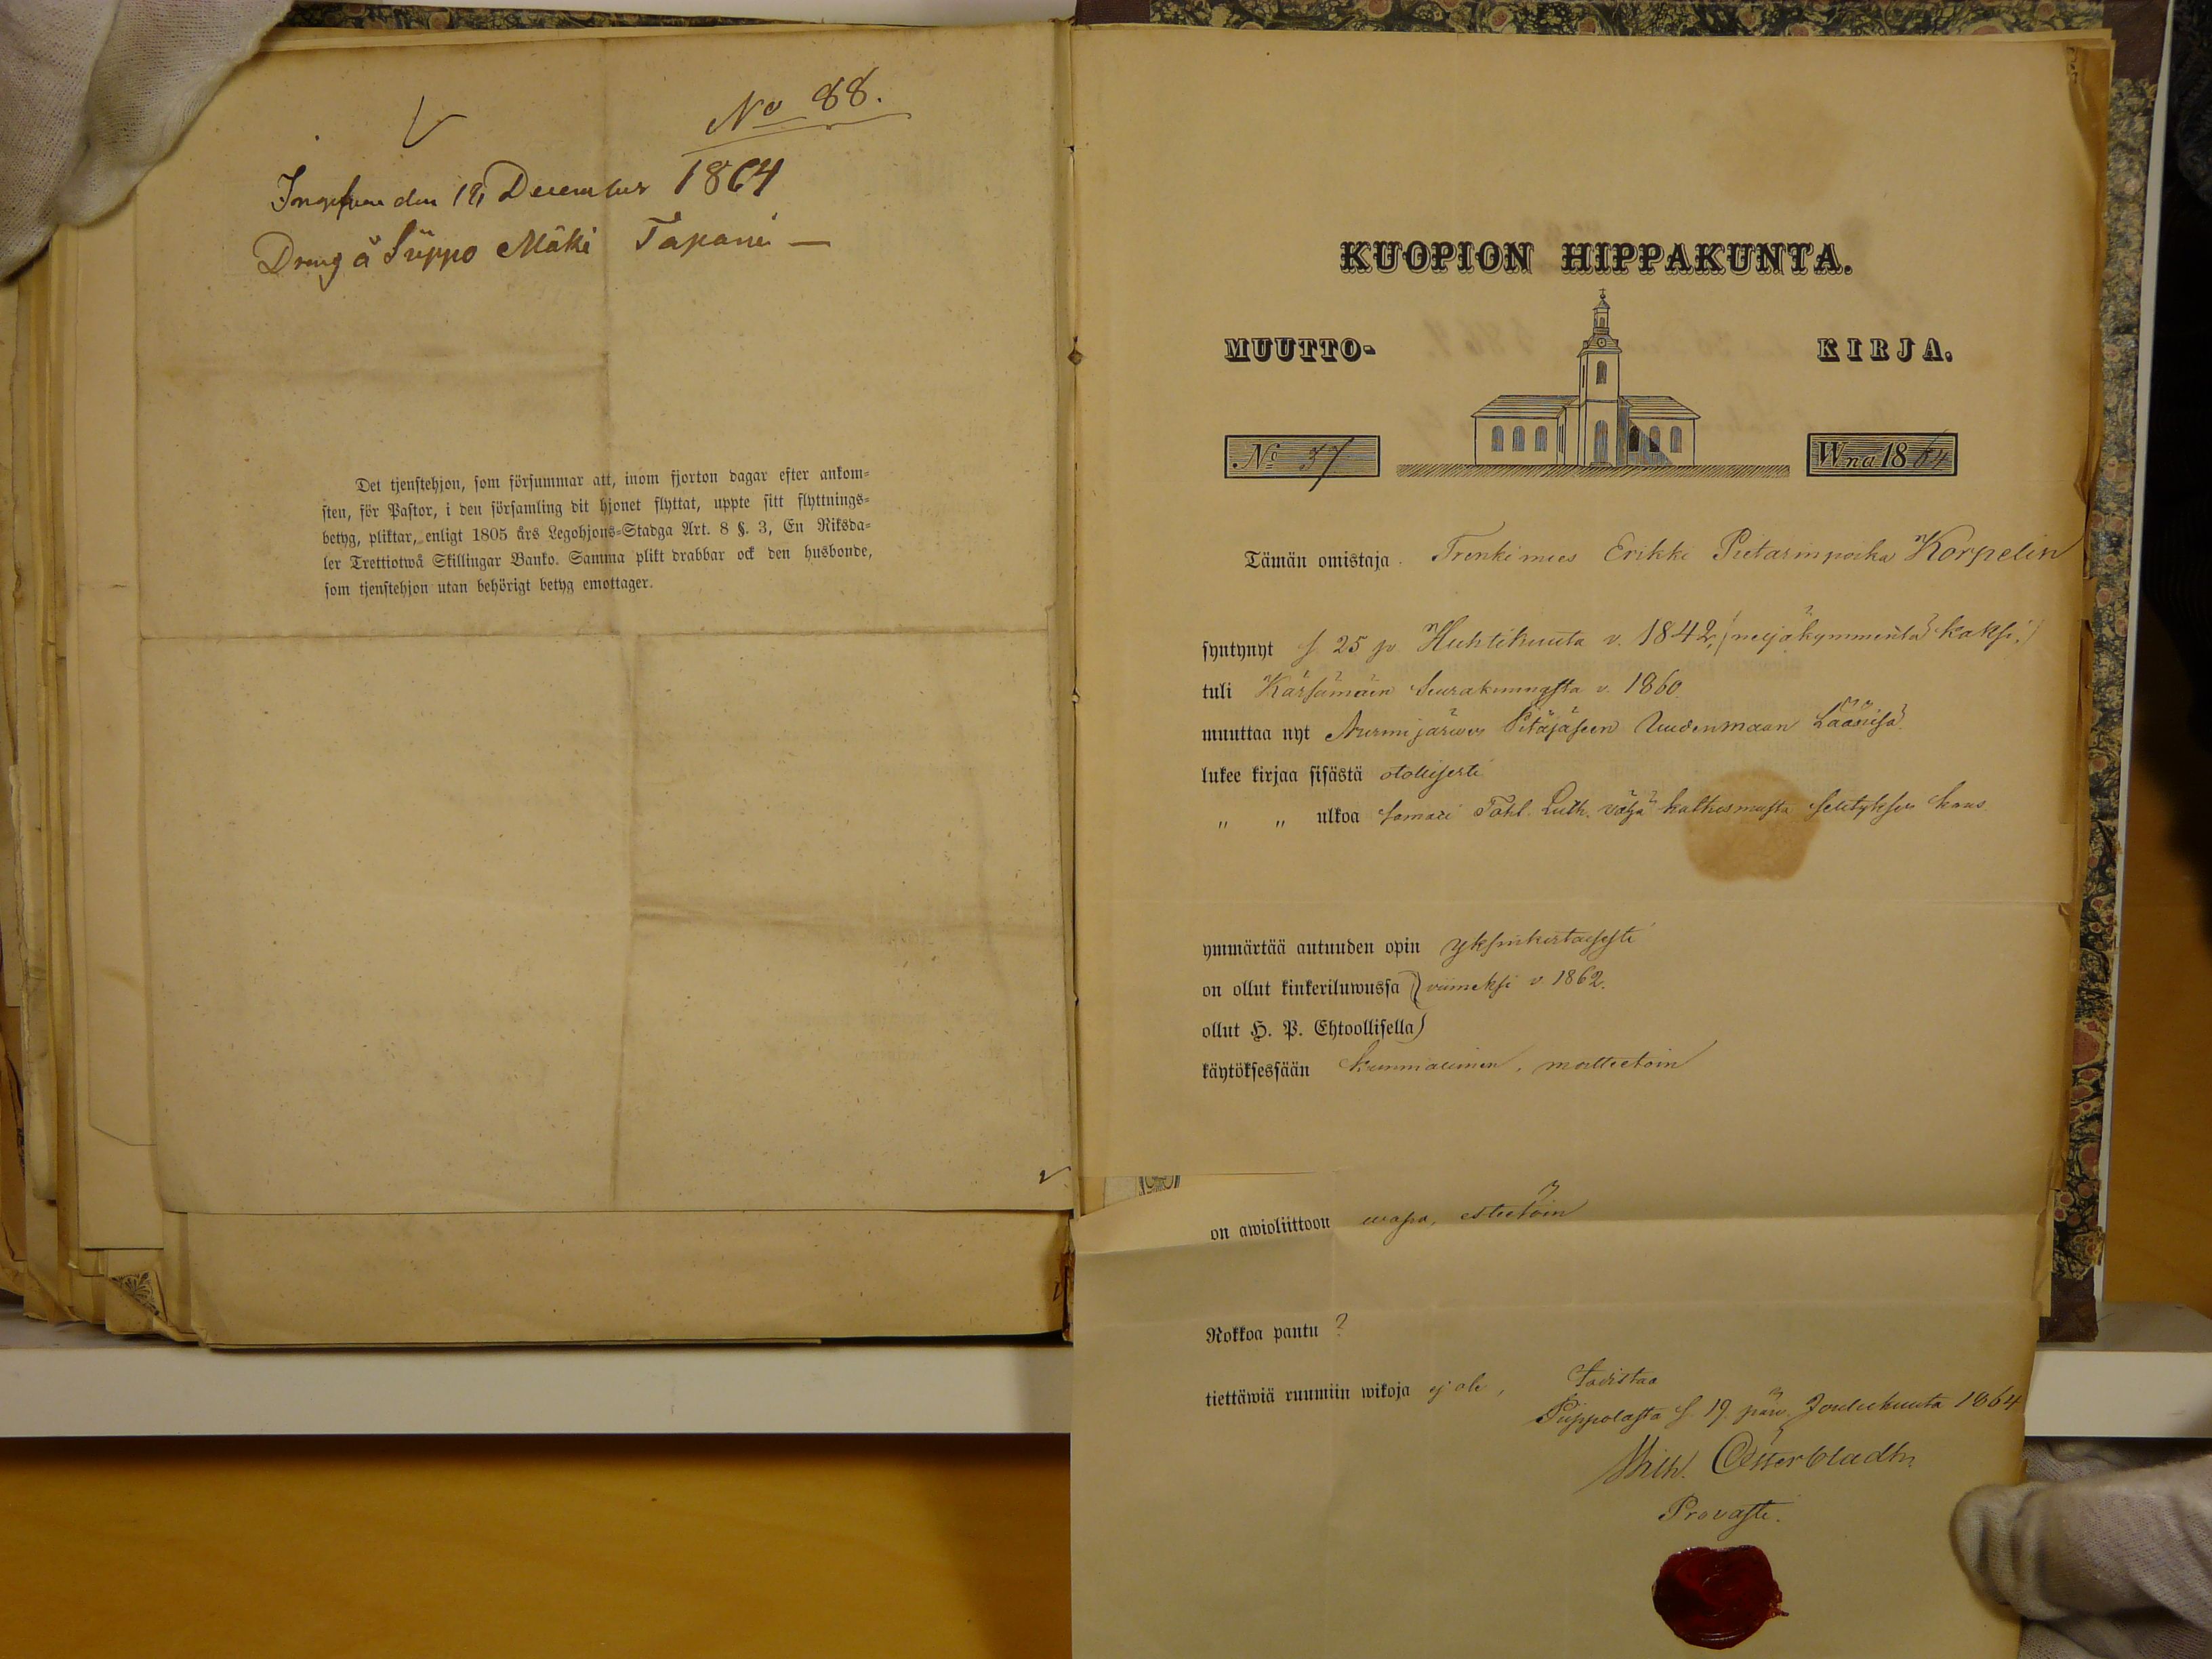 No 88.
den 19 December 1864
Dreng å Süppo Mäki Tapani —
Det tjenstehjon, som försummar att, inom fjorton dagar efter ankom-
sten, för Pastor, i den församling dit hjonet flyttat, uppte sitt flyttnings-
betyg, pliktar, enligt 1805 års Legohjons-Stadga Art. 8 §. 3, En Riksda-
ler Trettiotwå Skillingar Banko. Samma plikt drabbar ock den husbonde,
som tjenstehjon utan behörigt betyg emottager.
KUOPION HIPPAKUNTA.
MUUTTO- KIRJA.
No 37 Wna 1864
Tämän omistaja Trenkimies Erikki Pietarinpoika Korpelin
syntynyt s. 25 p. Huhtikuuta v. 1842, (neljäkymmentä kaksi.)
tuli Kärsämäen Seurakunnasta v. 1860.
muuttaa nyt Nurmijärven Pitäjäseen Uudenmaan Läänisä
lukee kirjaa sisästä otollisesti
„ „ ulkoa samate Luth. vähä katkesmusta selityksen kans
ymmärtää autuuden opin yksinkertaisesti
on ollut kinkeriluwussa } viimeksi v. 1862.
ollut H. P. Ehtoollisella }
käytöksessään kunniallinen, moitteetoin
on awioliittoon vapa, esteetöin
Rokkoa pantu ?
tiettäwiä ruumiin wikoja ej ole, Todistaa
Piippolasta s. 19. päiv. Joulukuuta 1864
Wilh. Österbladh.
Provasti.